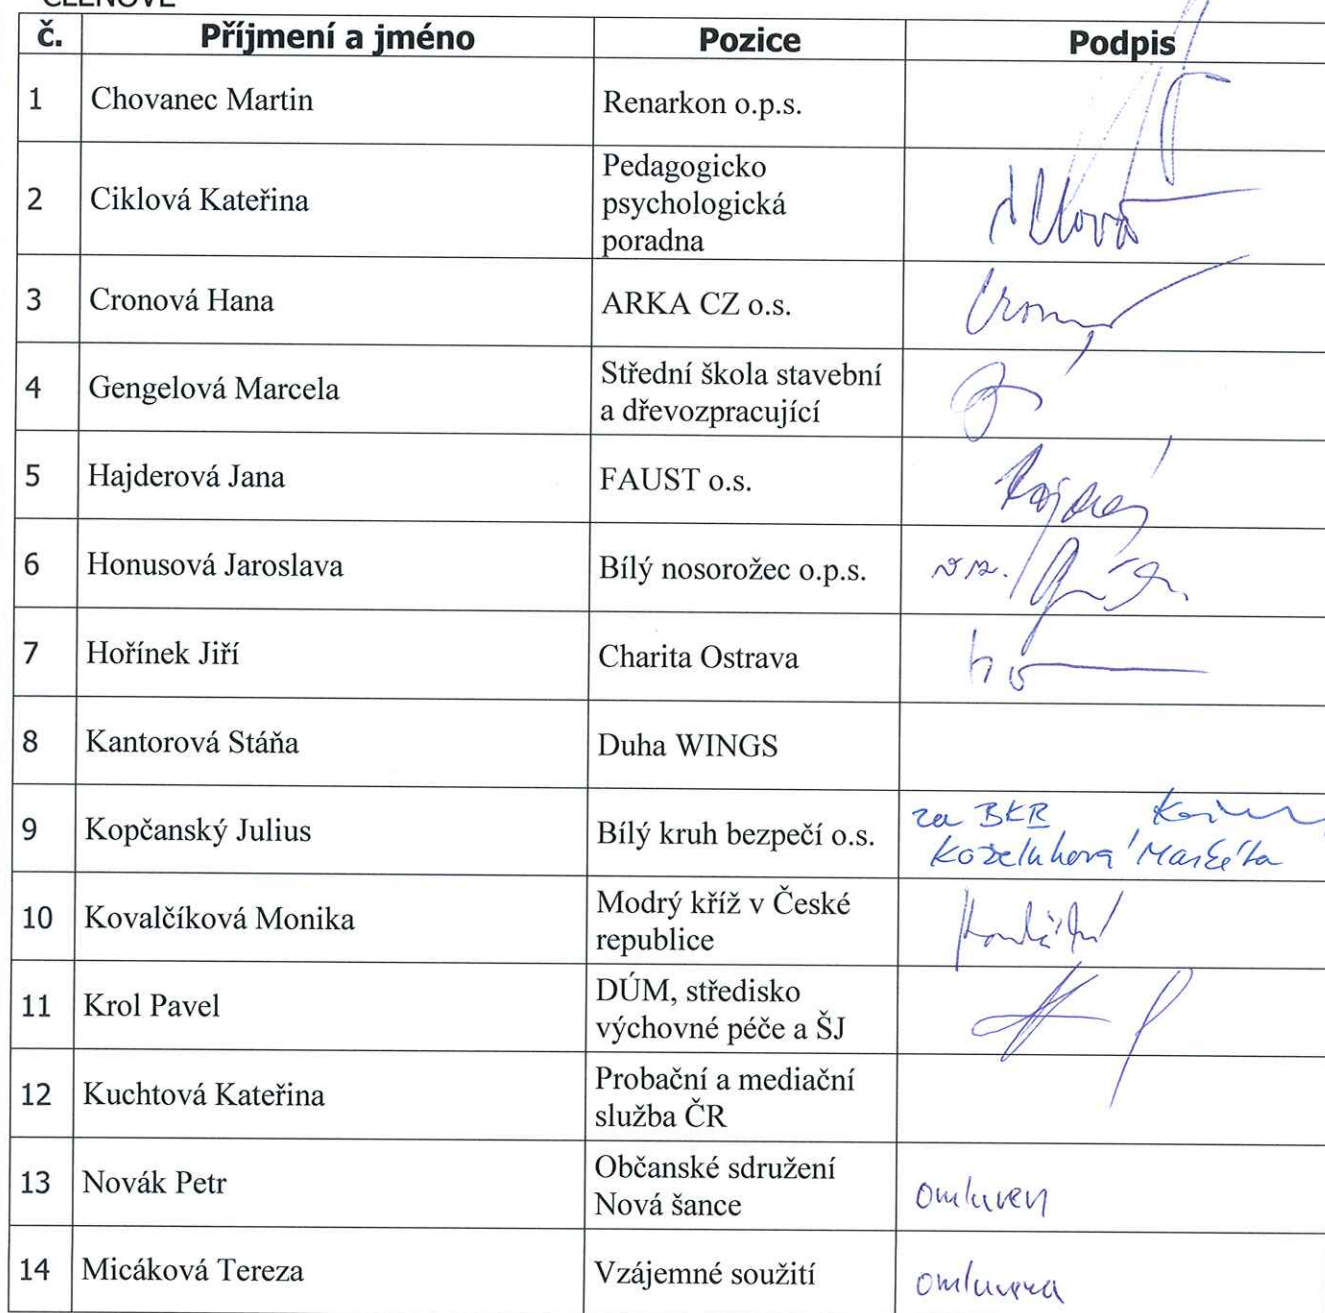 ČLENOVÉ
č. Příjmení a jméno Pozice Podpis
1 Chovanec Martin Renarkon o.p.s.
2 Ciklová Kateřina Pedagogicko
psychologická
poradna
3 Cronová Hana ARKA CZ o.s.
4 Gengelová Marcela Střední škola stavební
a dřevozpracující
5 Hajderová Jana FAUST o.s.
6 Honusová Jaroslava Bílý nosorožec o.p.s.
7 Hořínek Jiří Charita Ostrava
8 Kantorová Stáňa Duha WINGS
9 Kopčanský Julius Bílý kruh bezpečí o.s. za BKB
Koželuhová Markéta
10 Kovalčíková Monika Modrý kříž v České
republice
11 Krol Pavel DÚM, středisko
výchovné péče a ŠJ
12 Kuchtová Kateřina Probační a mediační
služba ČR
13 Novák Petr Občanské sdružení
Nová šance omluven
14 Micáková Tereza Vzájemné soužití omluvena